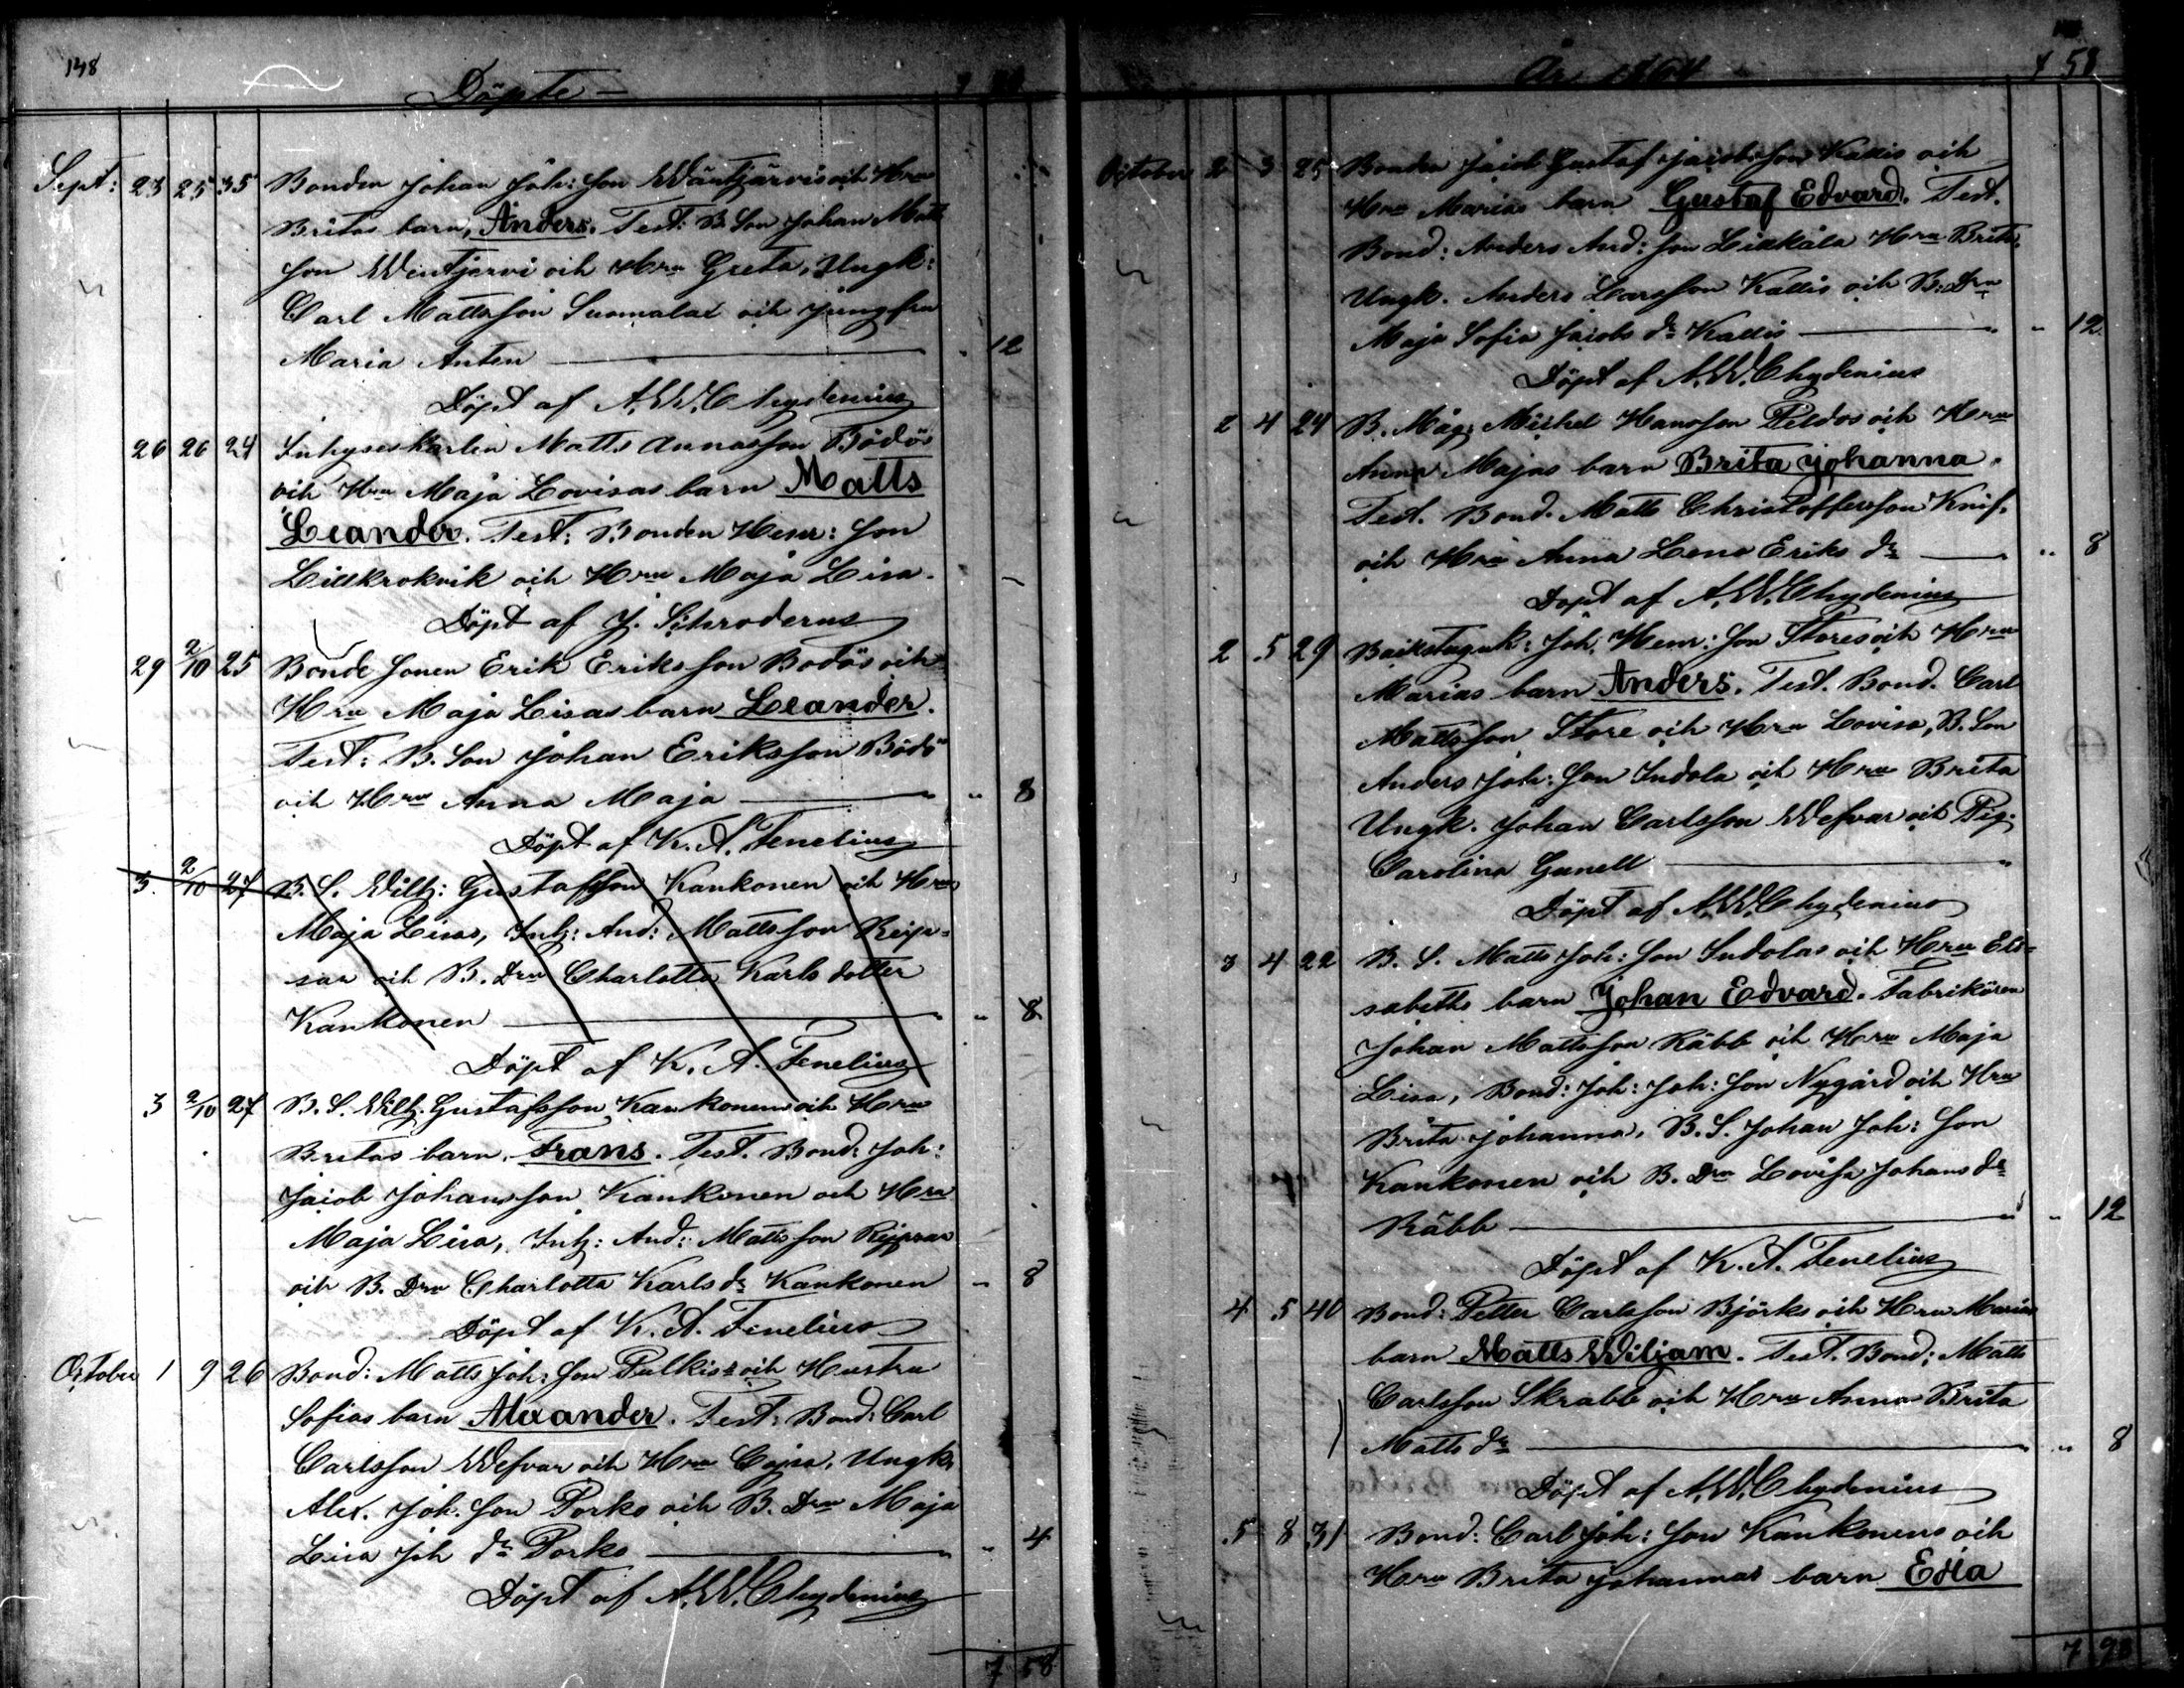 148
Döpte
Sept: 23 25 35 Bonden Johan Joh: Son Wäntjärvis och Hru
Britas barn, Anders. Test: B. Son Johan Matts
Son Wintjervi och Hru Greta, Ungk:
Carl Mattsson Suomalax och Jungfru
Maria Anten " 12
Döpt af A. W. Chydenius
26 26 24 Inhyseskarlen Matts Annasson Bödös
och Hru Maja Lovisas barn Matts
Leander. Test: Bonden Henr: Son
Lillkrokvik och Hru Maja Lisa.
Döpt af J. Schroderus
29 2/10 25 Bonde Sonen Erik Eriksson Bodös och
Hru Maja Lisas barn Leander.
Test: B. Son Johan Eriksson Bödö
och Hru Anna Maja " 8
Döpt af K. A. Fenelius
3. 2/10 27 B. S. Wilh: Gustafsson Kankonen och Hru
Maja Lisas, Inh: And: Mattsson Reip-
sar och B. Dru Charlotta Karls dotter
Kankonen " 8
Döpt af K. A. Fenelius
3 2/10 27 B. S. Wilh. Gustafsson Kankonens och Hru
Britas barn, Frans. Test. Bond: Joh:
Jacob Johansson Kankonen och Hru
Maja Lisa, Inh: And: Mattsson Reipsar
och B. Dru Charlotta Karls dr Kankonen " 8
Döpt af K. A. Fenelius
October 1 9 26 Bond: Matts Joh: Son Pulkis och Hustru
Sofias barn Alexander. Test: Bond: Carl
Carlsson Wefvar och Hru Cajsa, Ungk.
Alex. Joh. Son Porko och B. Dru Maja
Lisa Joh dr Porko " 4
Döpt af A. W. Chydenius
7 58
År 1864
7 58
October 2 3 25 Bonden Jacob Gustaf Jacobsson Kallis och
Hru Marias barn Gustaf Edvard. Test.
Bond: Anders And: Son Lillkåla Hru Brita,
Ungk. Anders Larsson Kallis och B: Dru
Maja Sofia Jacobs dr Kallis " 12
Döpt af A. W. Chydenius
2 4 24 B. Måg: Michel Hansson Peldos och Hru
Anna Majas barn Brita Johanna.
Test. Bond. Matts Christoffersson Knif,
och Hru Anna Lena Eriks dr " 8
Döpt af A. W. Chydenius
2 5 29 Backstuguk: Joh: Henr: Son Stores och Hru
Marias barn Anders. Test. Bond. Carl
Mattsson Store och Hru Lovisa, B. Son
Anders Joh: Son Indola och Hru Brita
Ungk. Johan Carlsson Wefvar och Pig.
Carolina Gunell
Döpt af A. W. Chydenius
3 4 22 B. S. Matts Joh: Son Indolas och Hru Eli-
sabeths barn Johan Edvard. Fabrikören
Johan Mattsson Räbb och Hru Maja
Lisa, Bond: Joh: Joh: Son Nygård och Hru
Brita Johanna, B. S. Johan Joh: Son
Kankonen och B. Dru Lovisa Johans dr
Räbb " 12
Döpt af K. A. Fenelius
4 5 40 Bond: Petter Carlsson Björks och Hru Marias
barn Matts Wiljam. Test. Bond: Matts
Carlsson Skrabb och Hru Anna Brita
Matts dr " 8
Döpt af A. W. Chydenius
5 8 31 Bond: Carl Joh: Son Kankonens och
Hru Brita Johannas barn Edla
7 98